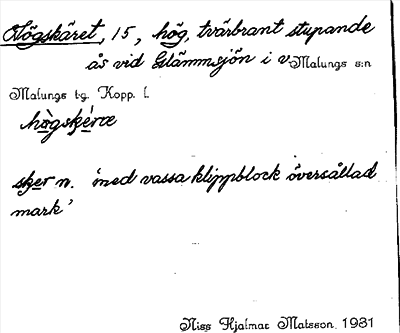 Högskäret, 15, hög, tvärbrant stupande
ås vid Glämmsjön i v. Malungs s:n
Malungs tg. Kopp. l.
hògskẹ́rẹ
skẹr n. 'med vassa klippblock översållad
mark'
Niss Hjalmar Matsson. 1931